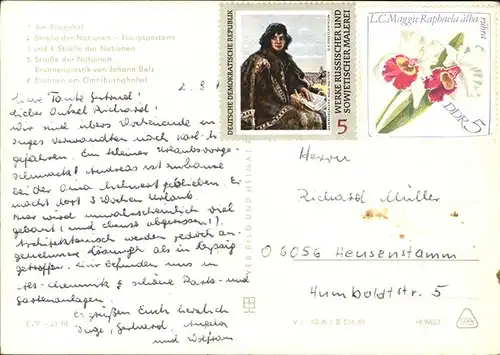 1 Am Rosenhof
2 Straße der Nationen - Hauptpostamt
3 und 4 Straße der Nationen
5 Straße der Nationen
Brunnenplastik von Johann Belz
6 Brunnen am Omnibusbahnhof
DEUTSCHE DEMOKRATISCHE REPUBLIK
WERKE RUSSISCHER UND
SOWJETISCHER MALEREI
5
L.C. Maggie Raphaela alba
DDR 5
2. 8.
Liebe Tante Gertrud!
Lieber Onkel Richard!
Wir sind übers Wochenende zu
Inges Verwandten nach
gefahren. Ein kleiner Urlaubsvorge-
schmack! Andreas ist zuhause
bei der Oma geblieben. Er
macht dort 3 Wochen Urlaub.
Hier wird unwahrscheinlich viel
gebaut! und abgerissen!).
Architektonisch werden jedoch an-
genehmere Lösungen als in Leipzig
getroffen. Wir befinden uns in
schöne Park- und
Gartenanlagen.
Es grüßen Euch herzlich
Inge, Gerhard, Angela
und Wolfram
Herrn
Richard Müller
6056 Heusenstamm
Humboldtstr. 5
VEB BILD UND HEIMAT